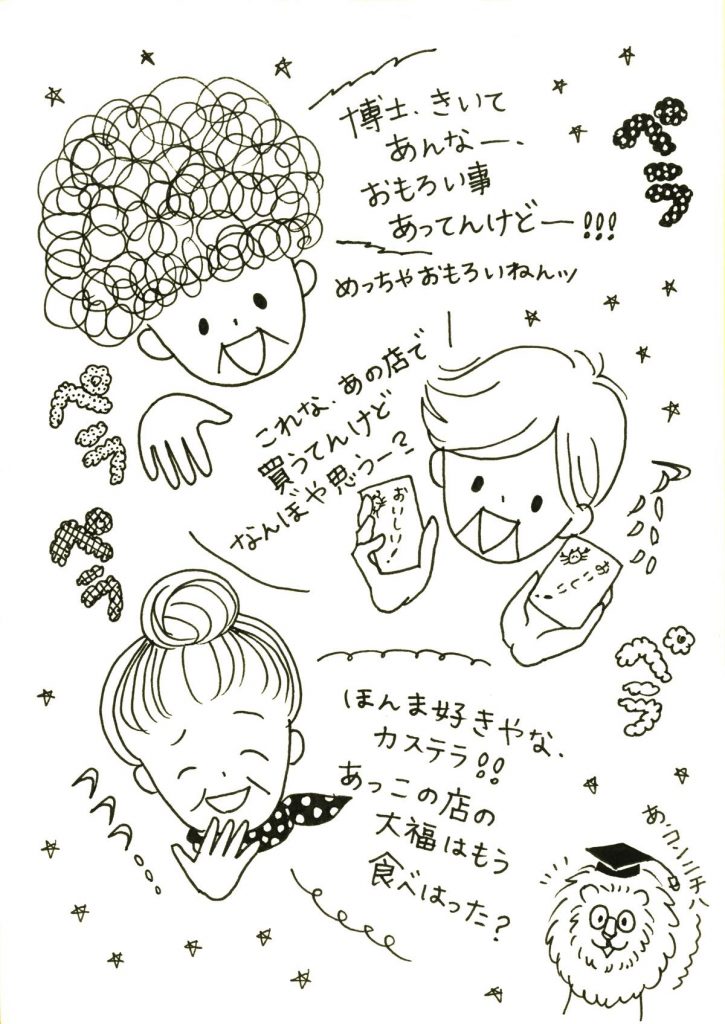 博士、きいて
あんなー、
おもろい事
あってんけどー!!!
めっちゃおもろいねんッ
ペラ
ペラ
これな、あの店で
買うてんけど
なんぼや思うー?
おいしい!
ペラ
ペラ
ほんま好きやな、
カステラ!!
あっこの店の
大福はもう
食べはった?
あ、コンニチハ